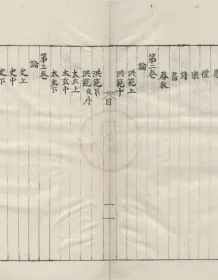 禮
樂
詩
書
春秋
第二卷
論
洪範上
洪範中
目
洪範下
洪範後序
太玄上
太玄中
太玄下
第三卷
論
史上
史中
史下